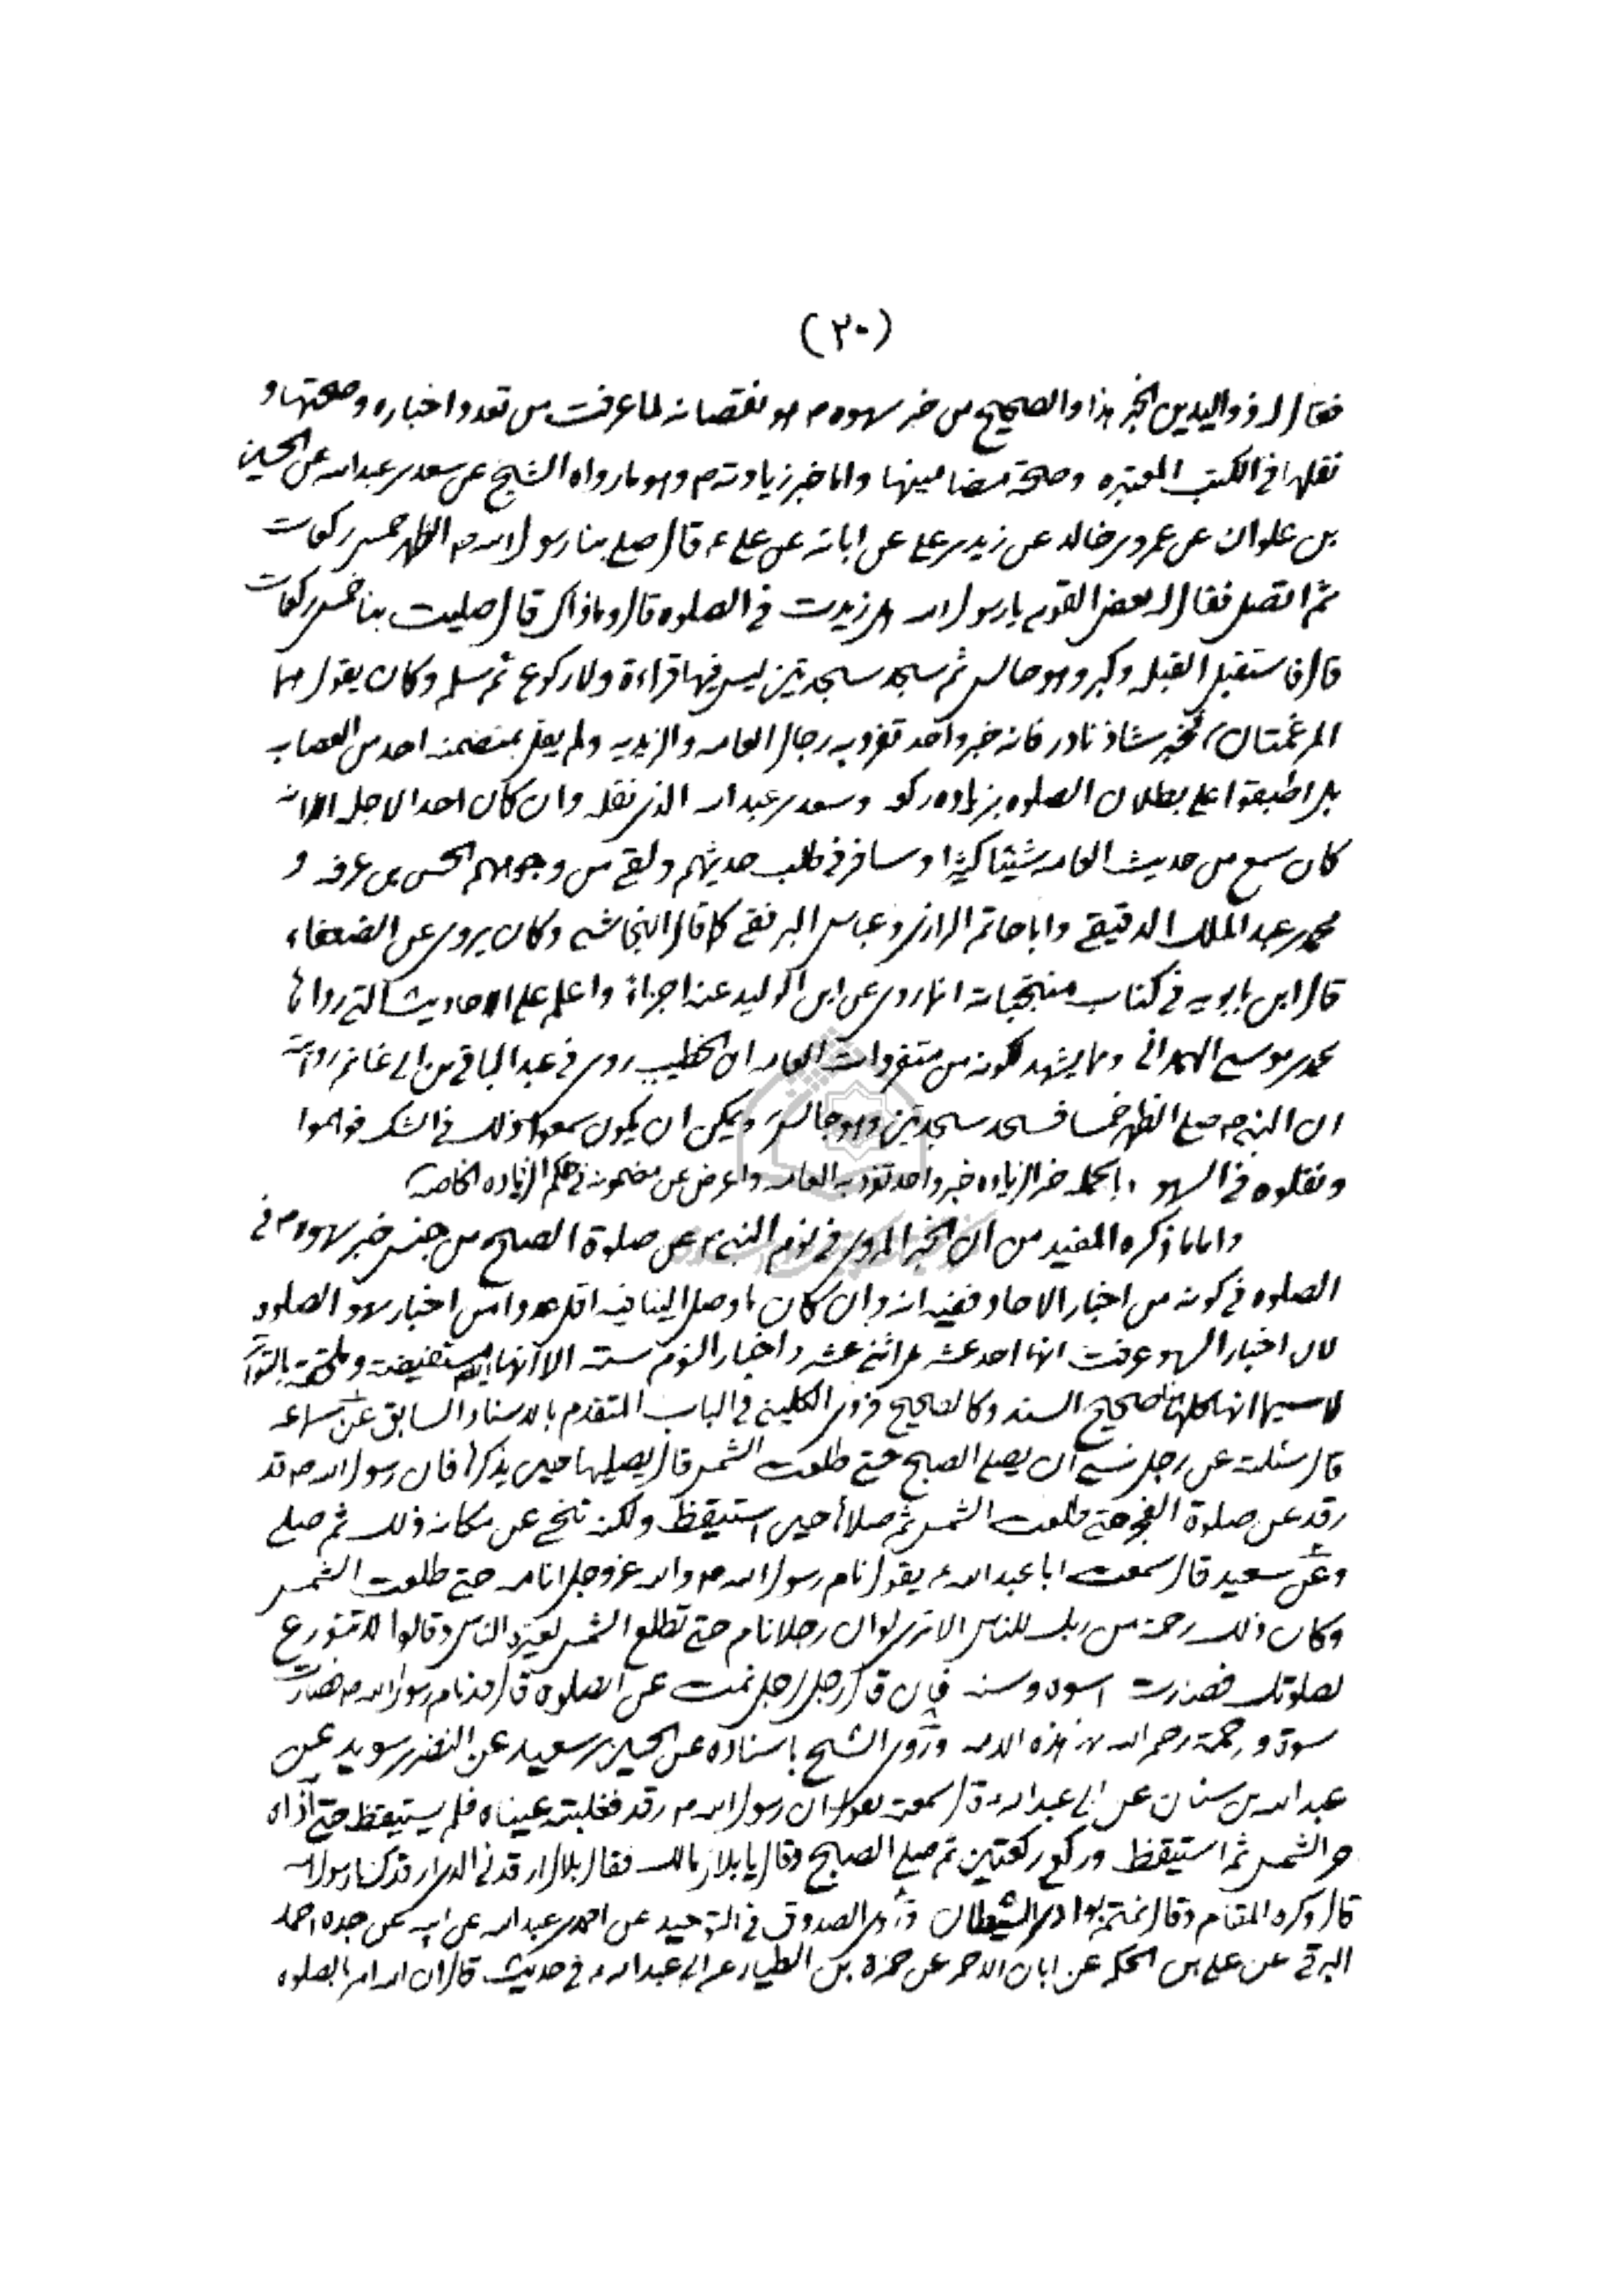 (٢٠)
فقال له ذو اليدين الخبر هذا والصحيح من خبر سهوه ص هو نقصانه لما عرفت من تعدد اخباره وصحتها و
نقلها في الكتب المعتبره وصحة مضامينها واما خبر زيادته ص وهو ما رواه الشيخ عن سعد بن عبدالله عن الحسين
بن علوان عن عمرو بن خالد عن زيد بن علي عن ابائه عن علي ع قال صلى بنا رسول الله ص الظهر خمس ركعات
ثم انفتل فقال له بعض القوم يا رسول الله هل زيدت في الصلوه قال وما ذاك قال صليت بنا خمس ركعات
قال فاستقبل القبله وكبر وهو جالس ثم سجد سجدتين ليس فيها قراءة ولا ركوع ثم سلم وكان يقول هما
المرغمتان، فخبر شاذ نادر فانه خبر واحد تفرد به رجال العامه والزيديه ولم يعمل بمتضمنه احد من العصابه
بل اطبقوا على بطلان الصلوه بزياده ركعة وسعد بن عبدالله الذي نقله وان كان احد الاجله الا انه
كان سمع من حديث العامه شيئا كثيرا وسافر في طلب حديثهم ولقي من وجوههم الحسن بن عرفه و
محمد بن عبد الملك الدقيقي وابا حاتم الرازي وعباس البرنقي كما قال النجاشي وكان يروي عن الضعفاء
قال ابن بابويه في كتاب منتخباته انما روى عن ابن الوليد عنه اجزاءً واعلم على الاحاديث التي رواها
محمد بن موسى الهمداني ومما يشهد لكونه من متفردات العامه ان الخطيب روى في عبد الباقي بن ابي غانم روايته
ان النبي ص صلى الظهر خمسا فسجد سجدتين وهو جالس، ويمكن ان يكون سمعوا ذلك في الشك فوهموا
ونقلوه في السهو، وبالجمله خبر الزياده خبر واحد تفرد به العامه واعرض عن مضمونه في حكم الزياده الخاصه
واما ما ذكره المفيد من ان الخبر المروى في نوم النبي ص عن صلوة الصبح من جنس خبر سهوه ص في
الصلوه في كونه من اخبار الاحاد ففيه انه وان كان ما وصل الينا فيه اقل عددا من اخبار سهو الصلوه
لان اخبار السهو عرفت انها احد عشر بل اثنى عشر واخبار النوم سته الا انها ايضا مستفيضة وملحقة بالتواتر
لا سيما انها كلها صحيح السند وكالصحيح فروى الكليني في الباب المتقدم بالاسناد السابق عن سماعه
قال سئلته عن رجل نسي ان يصلى الصبح حتى طلعت الشمس قال يصليها حين يذكرها فان رسول الله ص قد
رقد عن صلوة الفجر حتى طلعت الشمس ثم صلاها حين استيقظ ولكنه تنحى عن مكانه ذلك ثم صلى
وعن سعيد قال سمعت ابا عبدالله ع يقول نام رسول الله ص والله عزوجل انامه حتى طلعت الشمس
وكان ذلك رحمة من ربك للناس الا ترى لو ان رجلا نام حتى تطلع الشمس لعيره الناس وقالوا لا تتورع
لصلوتك فصارت اسوه وسنه فان قال رجل لرجل نمت عن الصلوه قال قد نام رسول الله ص فصارت
سوة ورحمة رحم الله بها هذه الامه وروى الشيخ باسناده عن الحسين بن سعيد عن النضر بن سويد عن
عبدالله بن سنان عن ابي عبدالله ع قال سمعته يقول ان رسول الله ص رقد فغلبته عيناه فلم يستيقظ حتى آذاه
حر الشمس ثم استيقظ وركع ركعتين ثم صلى الصبح وقال يا بلال مالك فقال بلال ارقدني الذي ارقدك يا رسول الله
قال وكره المقام وقال نمتم بوادي الشيطان وروى الصدوق في التوحيد عن احمد بن عبدالله عن ابيه عن جده احمد
البرقي عن علي بن الحكم عن ابان الاحمر عن حمزه بن الطيار عن ابي عبدالله ع في حديث قال ان الله امر بالصلوه